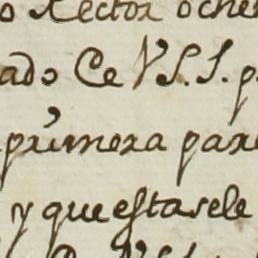 o Rector oche
ado Ce VS.S. p
primera par
y que estasele